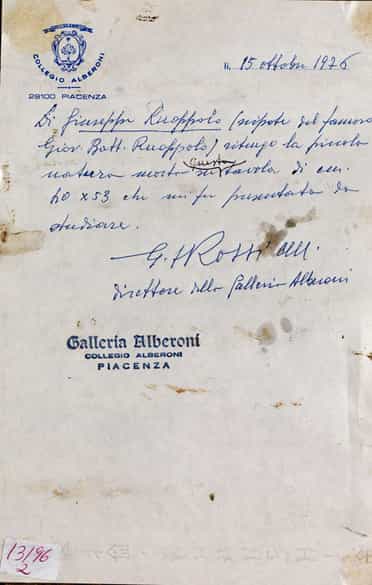 COLLEGIO ALBERONI
29100 PIACENZA
Il 15 ottobre 1976
Di Giuseppe Ruoppolo (nipote del famoso
Giov. Batt. Ruoppolo) ritengo la piccola
natura morta questa su tavola di cm.
40 x 53 che mi fu presentata da
studiare.
G. F. Rossi cm.
direttore della Galleria Alberoni
Galleria Alberoni
COLLEGIO ALBERONI
PIACENZA
13/96
2